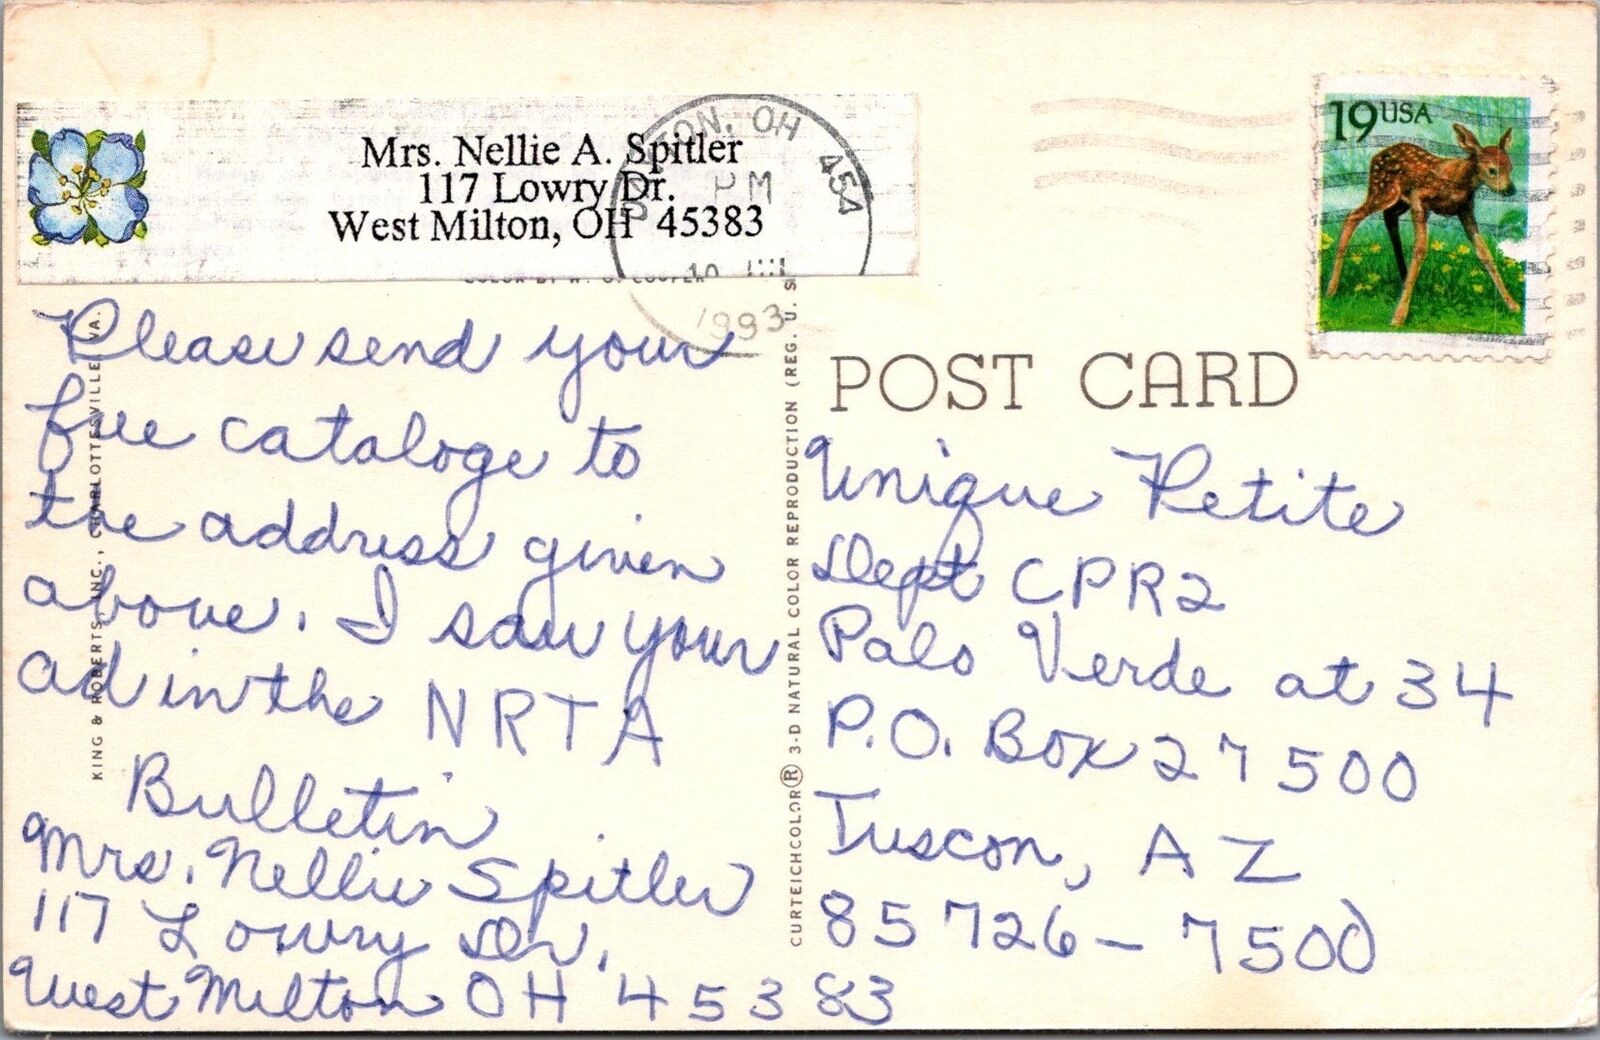 Mrs. Nellie A. Spitler
117 Lowry Dr.
West Milton, OH 45383
DAYTON, OH 454
PM
10 JUL
1993
19 USA
COLOR BY H. O. COOPER
Please send your
free cataloge to
the address given
above. I saw your
ad in the NRTA
Bulletin
Mrs. Nellie Spitler
117 Lowry Dr.
West Milton OH 45383
KING & ROBERTS, INC., CHARLOTTESVILLE, VA.
CURTEICHCOLOR® 3-D NATURAL COLOR REPRODUCTION (REG. U. S.
POST CARD
Unique Petite
Dept CPR2
Palo Verde at 34
P.O. Box 27500
Tuscon, AZ
85726-7500